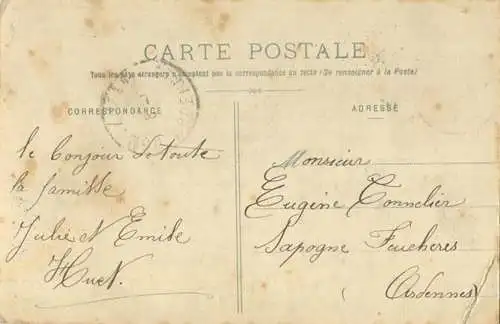 CARTE POSTALE
Tous les pays étrangers n'acceptent pas la correspondance au recto (Se renseigner à la Poste)
CORRESPONDANCE
le bonjour à toute
la famille
Julie et Emile
Huet
ADRESSE
Monsieur
Eugène Connelier
Sapogne Feuchères
Ardennes